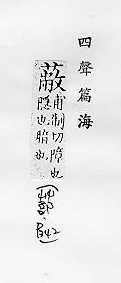 四聲篇海
蔽 甫制切障也
隱也暗也
(艸部‧B42)